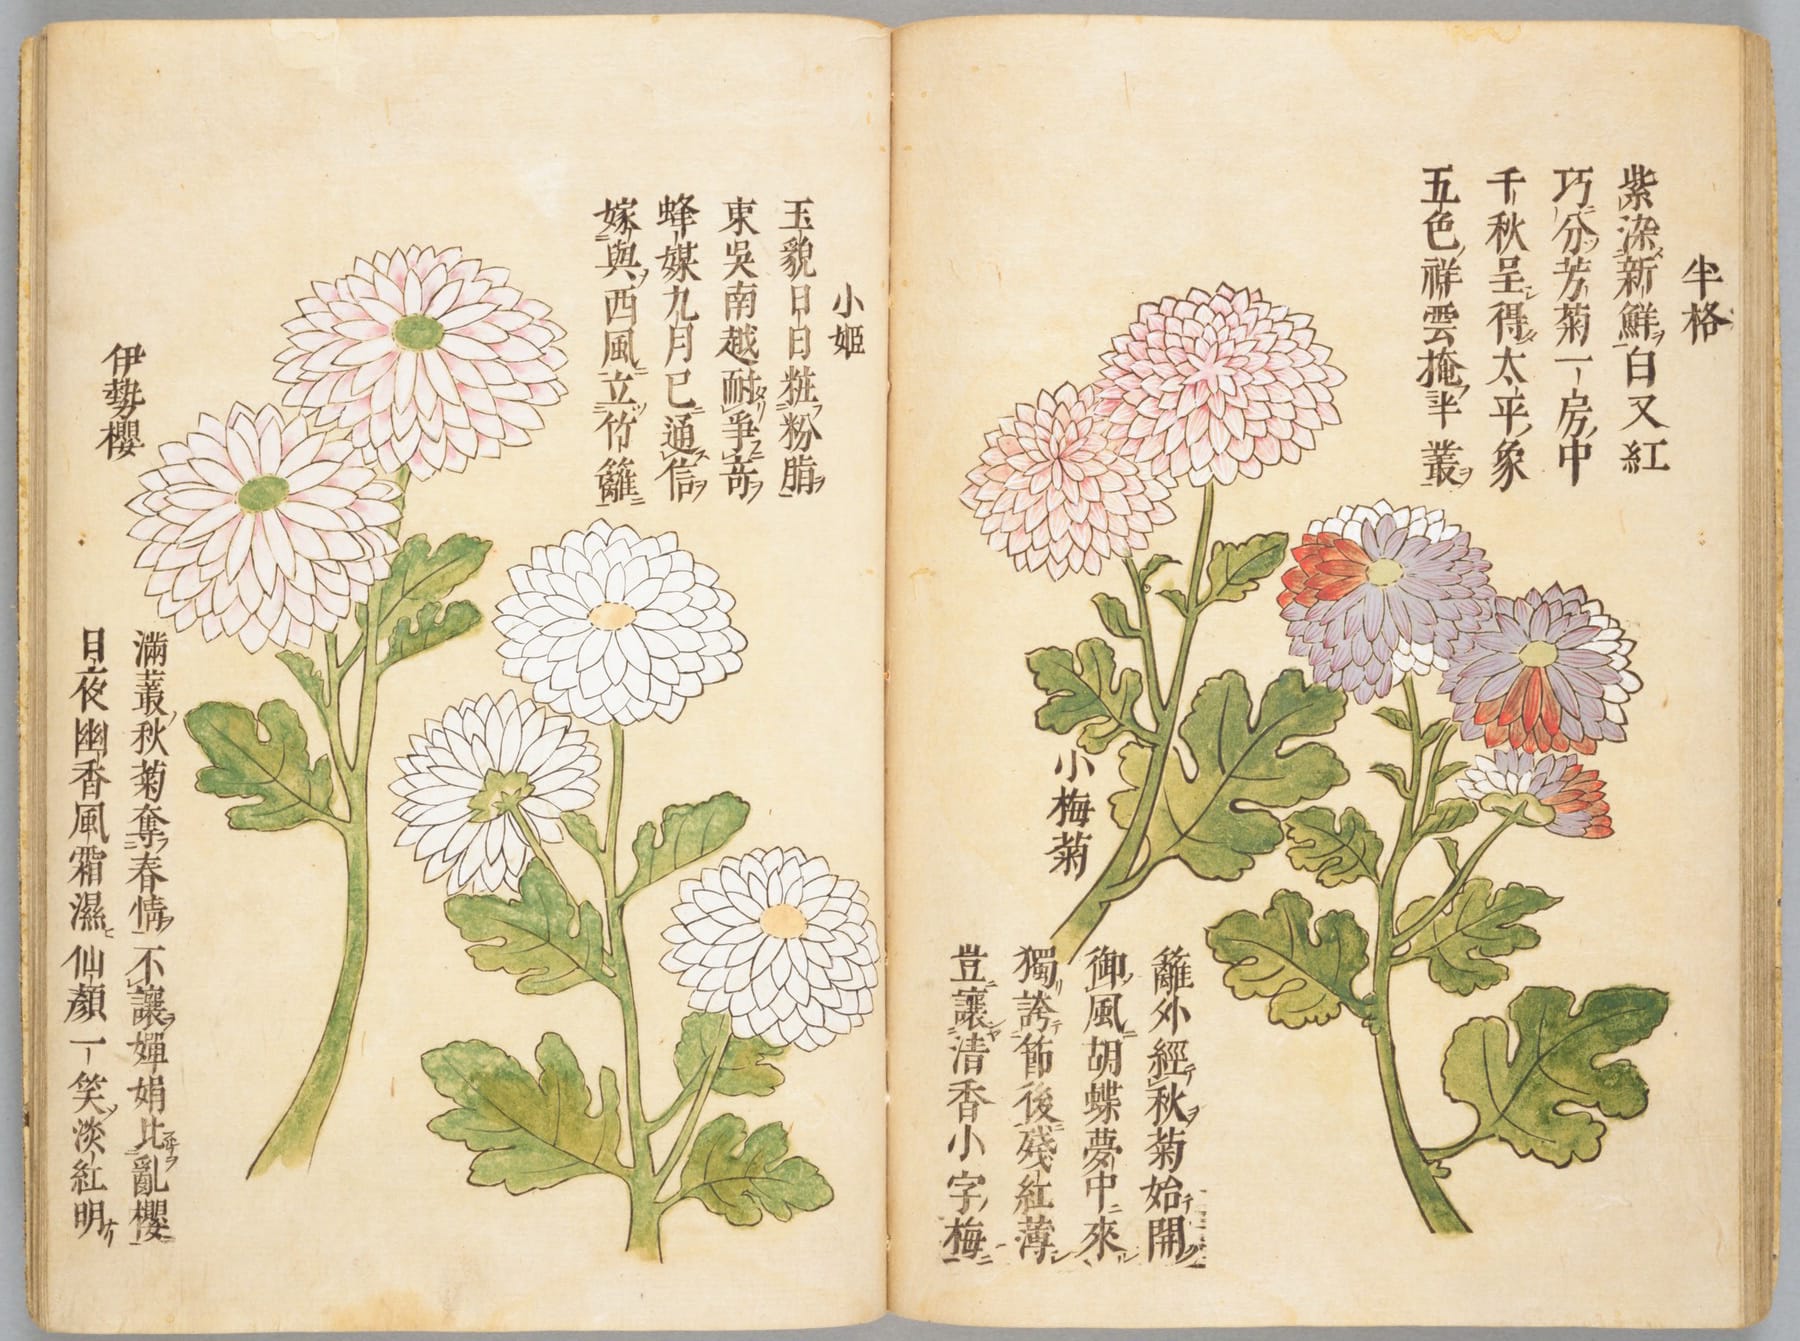 半格
紫染新鮮白又紅
巧分芳菊一房中
千秋呈得太平象
五色祥雲掩半叢
小梅菊
籬外經秋菊始開
御風胡蝶夢中來
獨誇節後殘紅薄
豈讓清香小字梅
小姫
玉貌日日粧粉脂
東吳南越耐爭奇
蜂媒九月已通信
嫁與西風立竹籬
伊勢櫻
滿叢秋菊奪春情 不讓嬋娟比亂櫻
日夜幽香風霜濕 仙顏一笑淡紅明